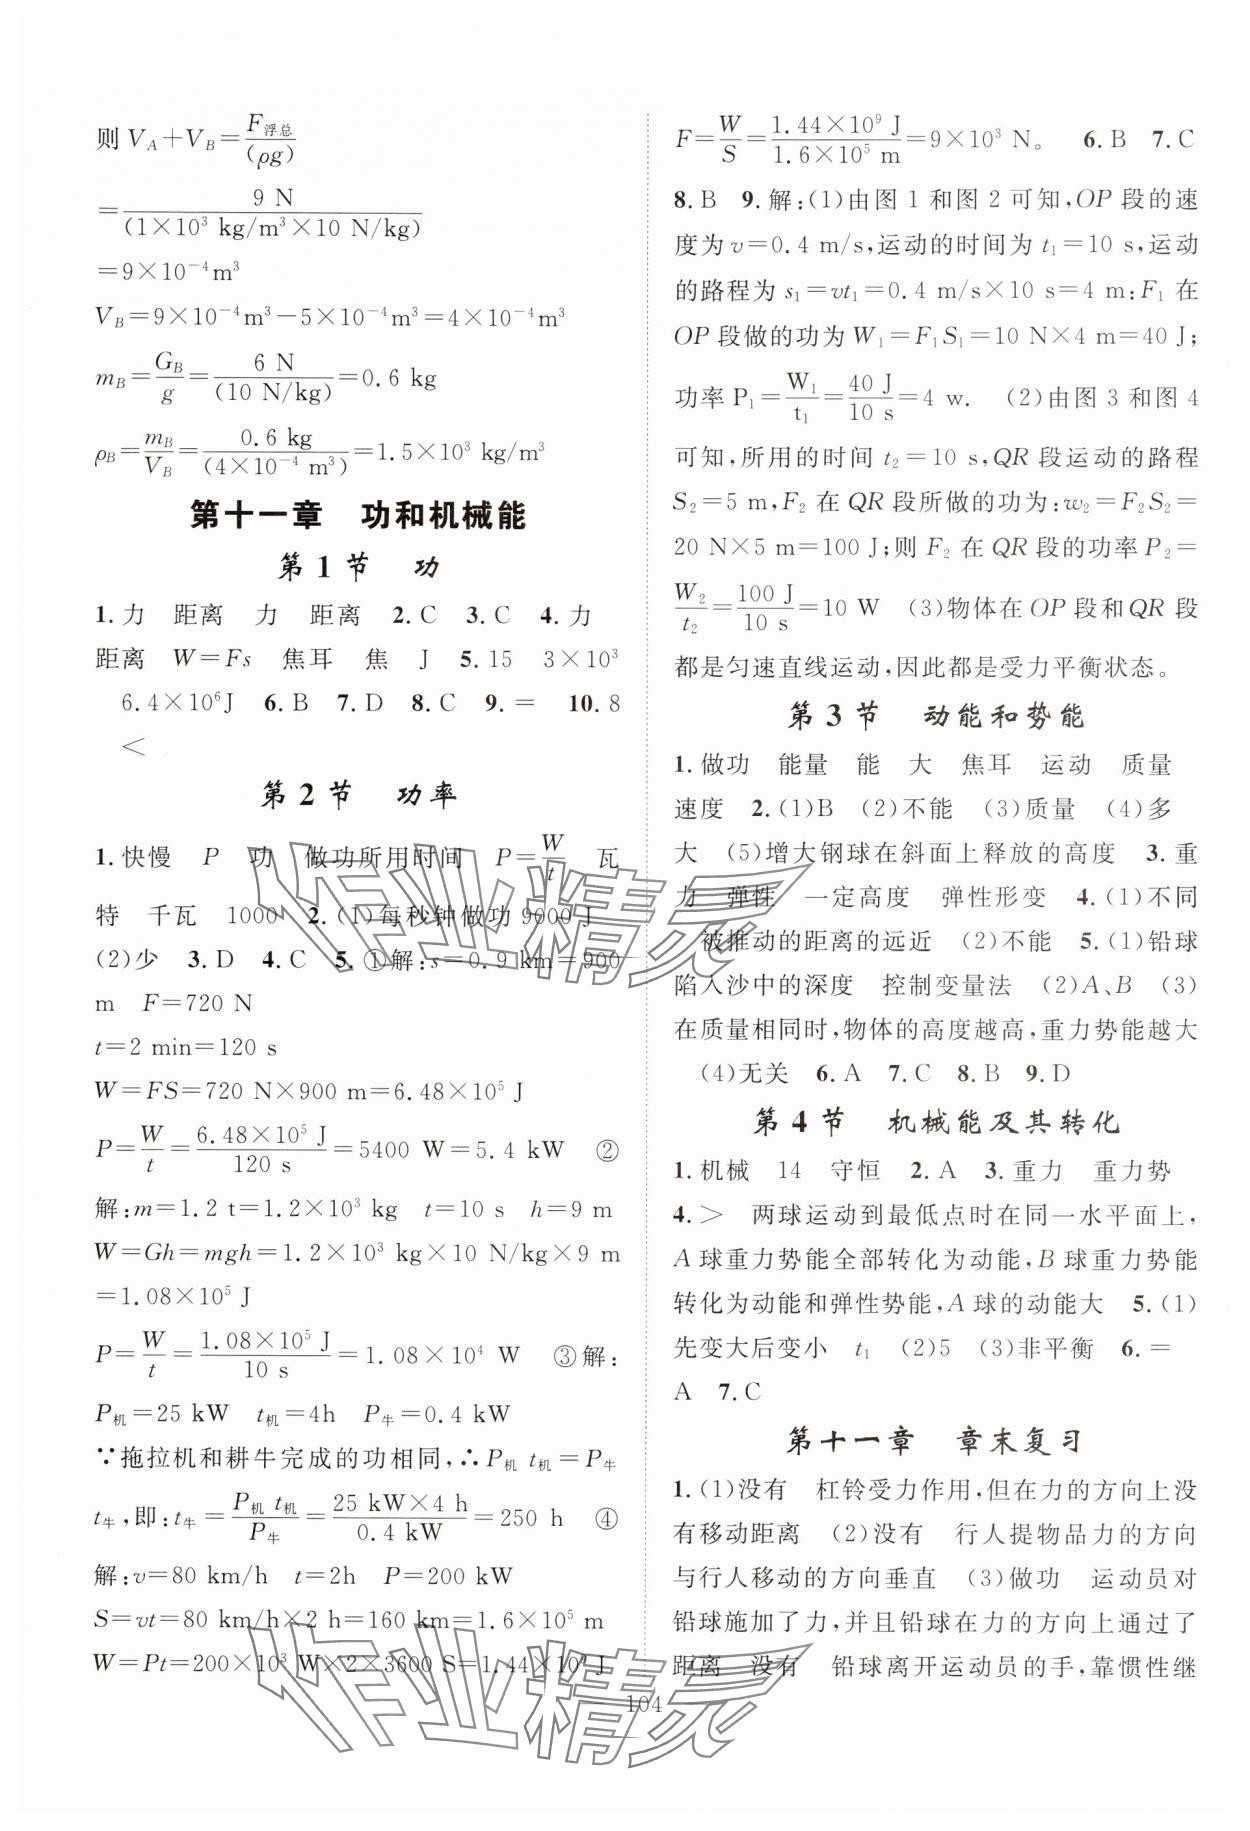 则 V_A＋V_B＝F浮总/(ρg)
＝9 N/(1×10³ kg/m³×10 N/kg)
＝9×10⁻⁴m³
V_B＝9×10⁻⁴m³－5×10⁻⁴m³＝4×10⁻⁴m³
m_B＝G_B/g＝6 N/(10 N/kg)＝0.6 kg
ρ_B＝m_B/V_B＝0.6 kg/(4×10⁻⁴ m³)＝1.5×10³ kg/m³
第十一章　功和机械能
第 1 节　功
1.力　距离　力　距离　2.C　3.C　4.力
距离　W＝Fs　焦耳　焦　J　5.15　3×10³
6.4×10⁶J　6.B　7.D　8.C　9.＝　10.8
＜
第 2 节　功率
1.快慢　P　功　做功所用时间　P＝W/t　瓦
特　千瓦　1000　2.(1)每秒钟做功 9000 J
(2)少　3.D　4.C　5.①解:s＝0.9 km＝900
m　F＝720 N
t＝2 min＝120 s
W＝FS＝720 N×900 m＝6.48×10⁵ J
P＝W/t＝6.48×10⁵ J/120 s＝5400 W＝5.4 kW　②
解:m＝1.2 t＝1.2×10³ kg　t＝10 s　h＝9 m
W＝Gh＝mgh＝1.2×10³ kg×10 N/kg×9 m
＝1.08×10⁵ J
P＝W/t＝1.08×10⁵ J/10 s＝1.08×10⁴ W　③解:
P机＝25 kW　t机＝4h　P牛＝0.4 kW
∵拖拉机和耕牛完成的功相同,∴P机 t机＝P牛
t牛,即:t牛＝P机 t机/P牛＝25 kW×4 h/0.4 kW＝250 h　④
解:v＝80 km/h　t＝2h　P＝200 kW
S＝vt＝80 km/h×2 h＝160 km＝1.6×10⁵ m
W＝Pt＝200×10³ W×2×3600 S＝1.44×10⁹ J
F＝W/S＝1.44×10⁹ J/1.6×10⁵ m＝9×10³ N。　6.B　7.C
8.B　9.解:(1)由图 1 和图 2 可知,OP 段的速
度为 v＝0.4 m/s,运动的时间为 t₁＝10 s,运动
的路程为 s₁＝vt₁＝0.4 m/s×10 s＝4 m:F₁ 在
OP 段做的功为 W₁＝F₁S₁＝10 N×4 m＝40 J;
功率 P₁＝W₁/t₁＝40 J/10 s＝4 w.　(2)由图 3 和图 4
可知,所用的时间 t₂＝10 s,QR 段运动的路程
S₂＝5 m,F₂ 在 QR 段所做的功为:w₂＝F₂S₂＝
20 N×5 m＝100 J;则 F₂ 在 QR 段的功率 P₂＝
W₂/t₂＝100 J/10 s＝10 W　(3)物体在 OP 段和 QR 段
都是匀速直线运动,因此都是受力平衡状态。
第 3 节　动能和势能
1.做功　能量　能　大　焦耳　运动　质量
速度　2.(1)B　(2)不能　(3)质量　(4)多
大　(5)增大钢球在斜面上释放的高度　3.重
力　弹性　一定高度　弹性形变　4.(1)不同
被推动的距离的远近　(2)不能　5.(1)铅球
陷入沙中的深度　控制变量法　(2)A、B　(3)
在质量相同时,物体的高度越高,重力势能越大
(4)无关　6.A　7.C　8.B　9.D
第 4 节　机械能及其转化
1.机械　14　守恒　2.A　3.重力　重力势
4.＞　两球运动到最低点时在同一水平面上,
A 球重力势能全部转化为动能,B 球重力势能
转化为动能和弹性势能,A 球的动能大　5.(1)
先变大后变小　t₁　(2)5　(3)非平衡　6.＝
A　7.C
第十一章　章末复习
1.(1)没有　杠铃受力作用,但在力的方向上没
有移动距离　(2)没有　行人提物品力的方向
与行人移动的方向垂直　(3)做功　运动员对
铅球施加了力,并且铅球在力的方向上通过了
距离　没有　铅球离开运动员的手,靠惯性继
104
作业精灵
作业精灵